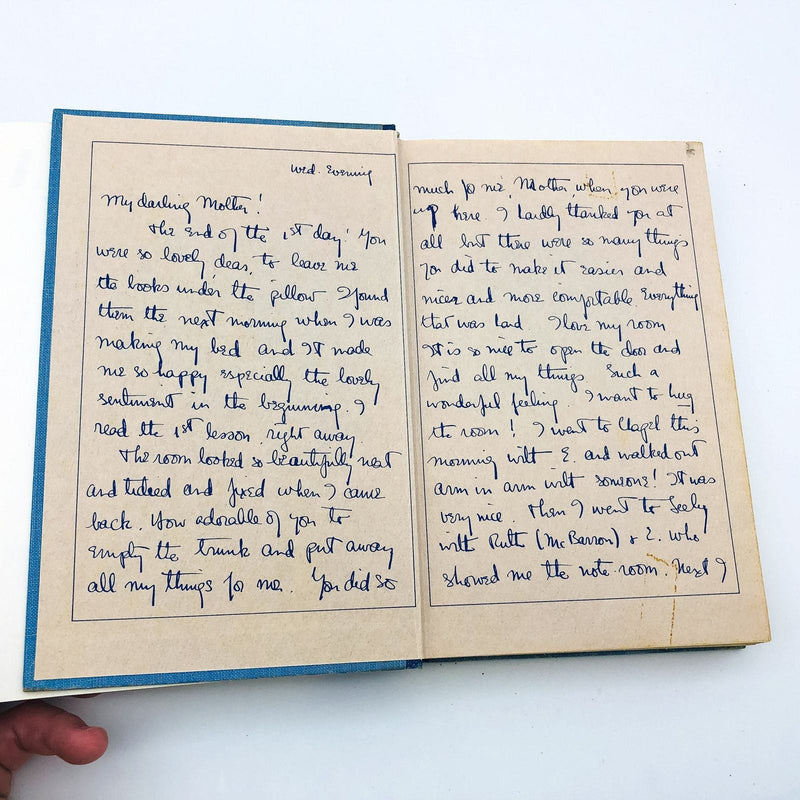 Wed. Evening
My darling Mother!
The end of the 1st day! You
were so lovely dear, to leave me
the books under the pillow I found
them the next morning when I was
making my bed and it made
me so happy especially the lovely
sentiment in the beginning. I
read the 1st lesson right away.
The room looked so beautifully neat
and tidied and fixed when I came
back. How adorable of you to
empty the trunk and put away
all my things for me. You did so
much for me, Mother, when you were
up here. I hardly thanked you at
all but there were so many things
you did to make it easier and
nicer and more comfortable. Everything
that was hard. I love my room
It is so nice to open the door and
find all my things. Such a
wonderful feeling. I want to hug
the room! I went to Chapel this
morning with E. and walked out
arm in arm with someone! It was
very nice. Then I went to Seely
with Ruth (McBarron) & E. who
showed me the note room. Next I